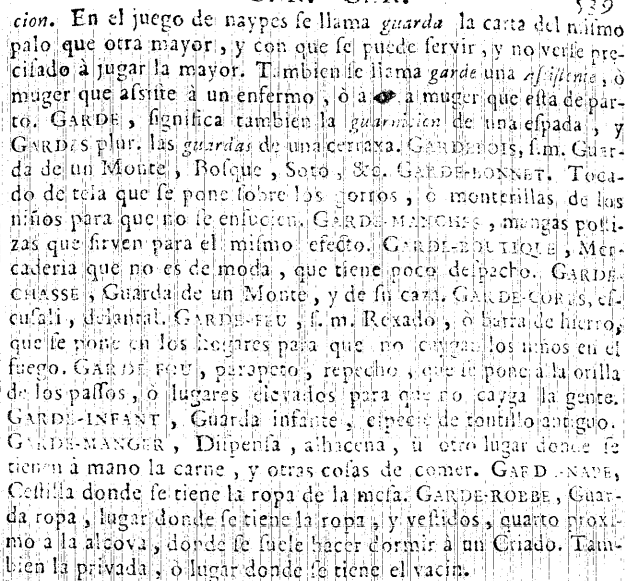 539
cion. En el juego de naypes ſe llama guarda la carta del miſmo
palo que otra mayor, y con que ſe puede ſervir, y no verſe pre-
ciſado à jugar la mayor. Tambien ſe llama garde una aſiſtente, ò
muger que aſsiſte à un enfermo, ò à a muger que eſta de par-
to. GARDE, ſignifica tambien la guarnicion de una eſpada, y
GARDES plur. las guardas de una cerraxa. GARDEBOIS, ſ.m. Guar-
da de un Monte, Boſque, Soto, &c. GARDE-BONNET. Toca-
do de tela que ſe pone ſobre los gorros, ò monterillas de los
niños para que no ſe enſucien. GARDE-MANCHES, mangas poſti-
zas que ſirven para el miſmo efecto. GARDE-BOUTIQUE, Mer-
caderia que no es de moda, que tiene poco deſpacho. GARDE-
CHASSE, Guarda de un Monte, y de ſu caza. GARDE-CORPS, eſ-
cuſali, delantal. GARDE-FEU, ſ. m. Rexado, ò barra de hierro,
que ſe pone en los hogares para que no caygan los niños en el
fuego. GARDE-FOU, parapeto, repecho, que ſe pone à la orilla
de los paſſos, ò lugares elevados para que no cayga la gente.
GARDE-INFANT, Guarda infante, eſpecie de tontillo antiguo.
GARDE-MANGER, Diſpenſa, alhacena, ù otro lugar donde ſe
tienen à mano la carne, y otras coſas de comer. GARDE-NAPE,
Ceſtilla donde ſe tiene la ropa de la meſa. GARDE-ROEBE, Guar-
da ropa, lugar donde ſe tiene la ropa, y veſtidos, quarto proxi-
mo à la alcova, donde ſe ſuele hacer dormir à un Criado. Tam-
bien la privada, ò lugar donde ſe tiene el vacin.